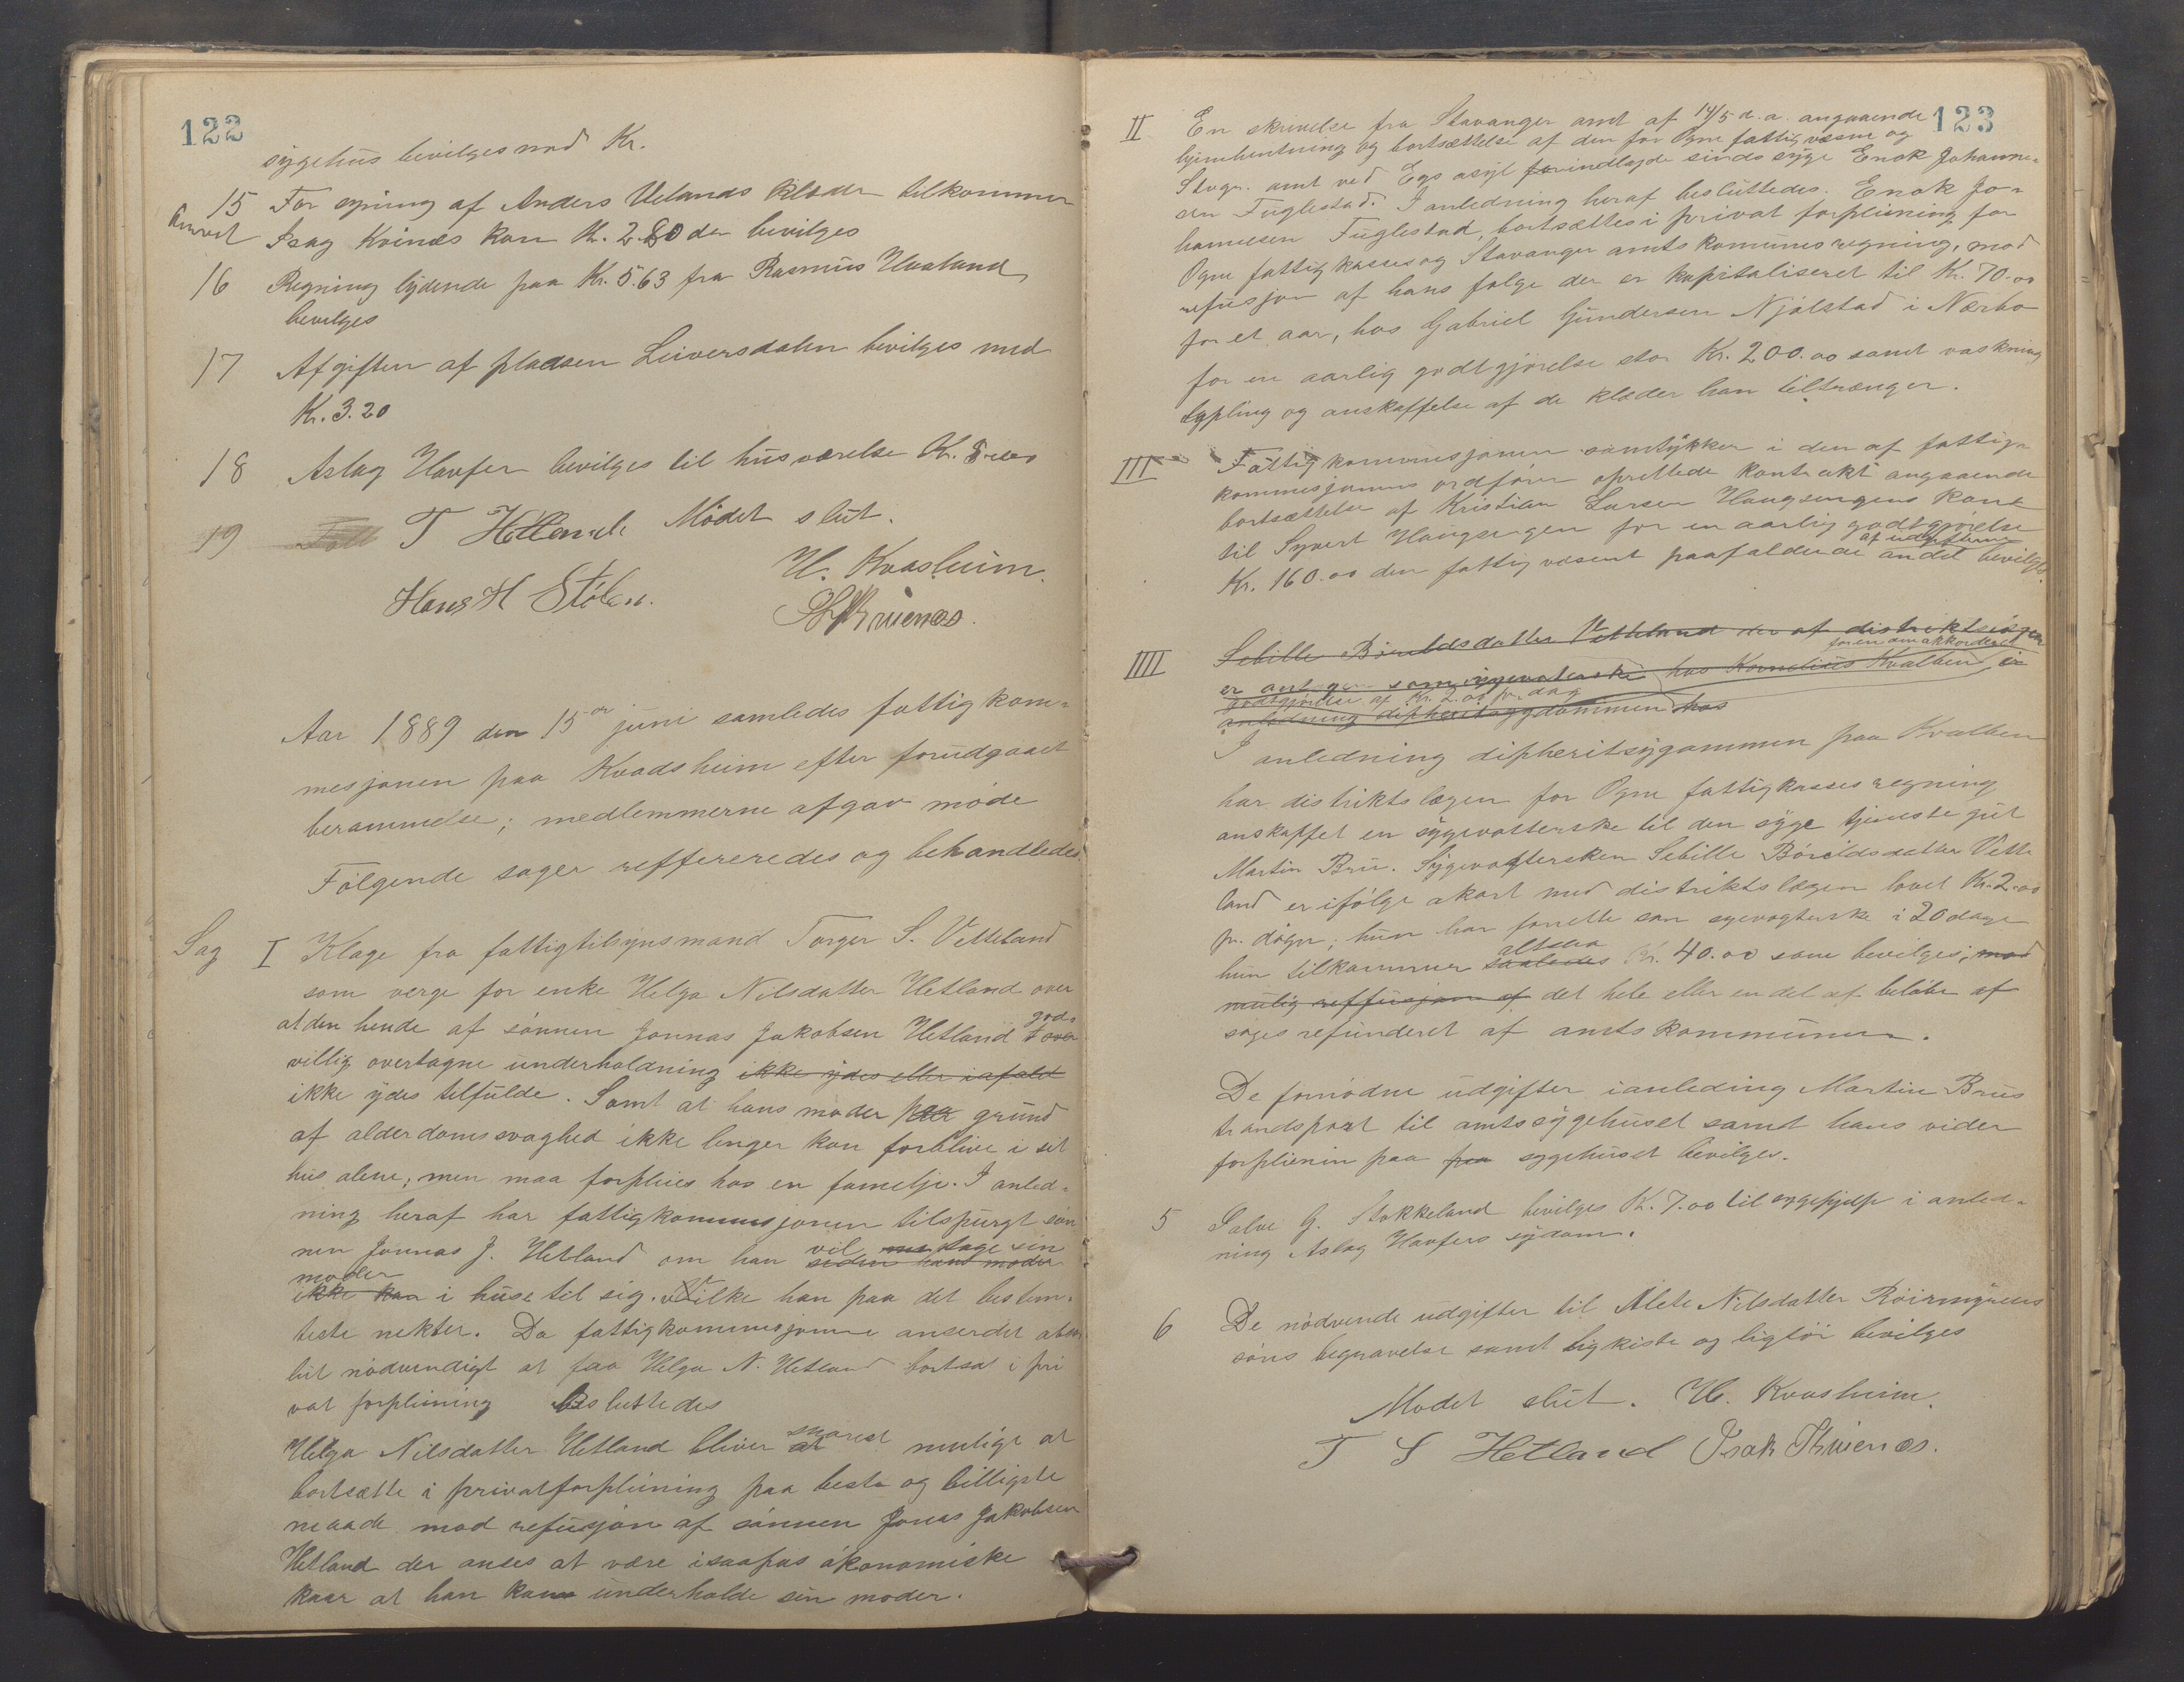 122
sygehus bevilges med Kr.
15 For syning af Anders Uelands klæder tilkommer
Anvist Isag Kvinæs kone Kr. 2.80 der bevilges
16 Regning lydende paa Kr. 5.63 fra Rasmus Haaland
bevilges
17 Afgiften af pladsen Liversdalen bevilges med
Kr. 3.20
18 Aslag Havfer bevilges til husværelse Kr.
19 T Hetland Mödet slut.
H. Kvasheim.
Hans H Stölen.
Aar 1889 den 15de juni samledes fattigkom-
mesjonen paa Kvadsheim efter forudgaaet
berammelse; medlemmerne afgav möde
Fölgende sager reffereredes og behandledes.
Sag I Klage fra fattigtilsynsmand Torger S. Vetteland
som verge for enke Helga Nilsdatter Hetland over
at den hende af sönnen Jonnas Jakobsen Hetland god-
villig overtagne underholdning ikke ydes eller iafald
ikke ydes tilfulde. Samt at hans moder paa grund
af alderdomssvaghed ikke lenger kan forblive i sit
hus alene, men maa forpleies hos en familje. I anled-
ning heraf har fattigkommisjonen tilspurgt søn
nen Jonnas J. Hetland om han vil tage sin
siden hans moder
moder
ikke kan i huse til sig. Vilke han paa det bestem-
teste nekter. Da fattigkommisjonen anser det abso
lut nödvendigt at faa Helga N. Hetland bortsat i pri
vat forpleining besluttedes
Helga Nilsdatter Hetland bliver snarest mulige at
bortsætte i privatforpleining paa beste og billigste
maade mod refusjon af sønnen Jonas Jakobsen
Hetland der anses at være isaapas ökonomiske
kaar at han kan underholde sin moder.
123
II En skrivelse fra Stavanger amt af 14/5 d.a. angaaende
hjemhentning og bortsættelse af den for Ogne fattigvæsen og
Stvgr. amt ved Egs asyl forindlagde sindssyge Enok Johanne-
sen Fuglestad. I anledning heraf besluttedes. Enok Jo-
hannesen Fuglestad, bortsættes i privat forpleining for
Ogne fattigkasses og Stavanger amtskomunes regning, mod
refusjon af hans folge der er kapitaliseret til Kr. 70.00
for et aar, hos Gabriel Gundersen Njølstad i Nærbø
for en aarlig godtgjörelse stor Kr. 200.00 samt vaskning
lapling og anskaffelse af de klæder han tiltrænger.
III Fattigkommisjonen samtykker i den af fattig-
kommisjonens ordförer oprettede kontrakt angaaende
bortsættelse af Kristian Larsen Haugsengens kone
til Syvert Haugsengen for en aarlig godtgörelse
af udgifterne
Kr. 160.00 den fattigvæsent paafaldende andel bevilges.
IIII Sebille Böreldsdatter Vetteland der af distriktslægen
for en den akkorderet
er antagen som sygevogterske hos Kornelius Kvalben i
godtgjörelse af Kr. 2.00 pr. dag
anledning dipheritsygdommen hos
I anledning dipheritsygommen paa Kvalben
har distriktslægen for Ogne fattigkasses regning
anskaffet en sygevotterske til den syge tjenestegut
Martin Bru. Sygevogtersken Sebille Böreldsdatter Vette
land er ifölge akort med distriktslægen lovet Kr. 2.00
pr. dögn; hun har forrette som sygevogterske i 20 dage
altsaa
hun tilkommer saaledes Kr. 40.00 som bevilges; mod
mulig reffusjon af det hele eller en del af belöbe af
søges refunderet af amtskommunen.
De fornödne udgifter i anleding Martin Brus
trandsport til amtssygehuset samt hans vider
forpleinin paa paa sygehuset bevilges.
5 Salve G. Stokkeland bevilges Kr. 7.00 til sygehjelp i anled-
ning Aslag Havfers sydom.
6 De nödvende udgifter til Alete Nilsdatter Röirmyrens
søns begravelse samt ligkiste og ligtöi bevilges
Mödet slut. H. Kvasheim.
T S Hetland Isak Kvienæs.